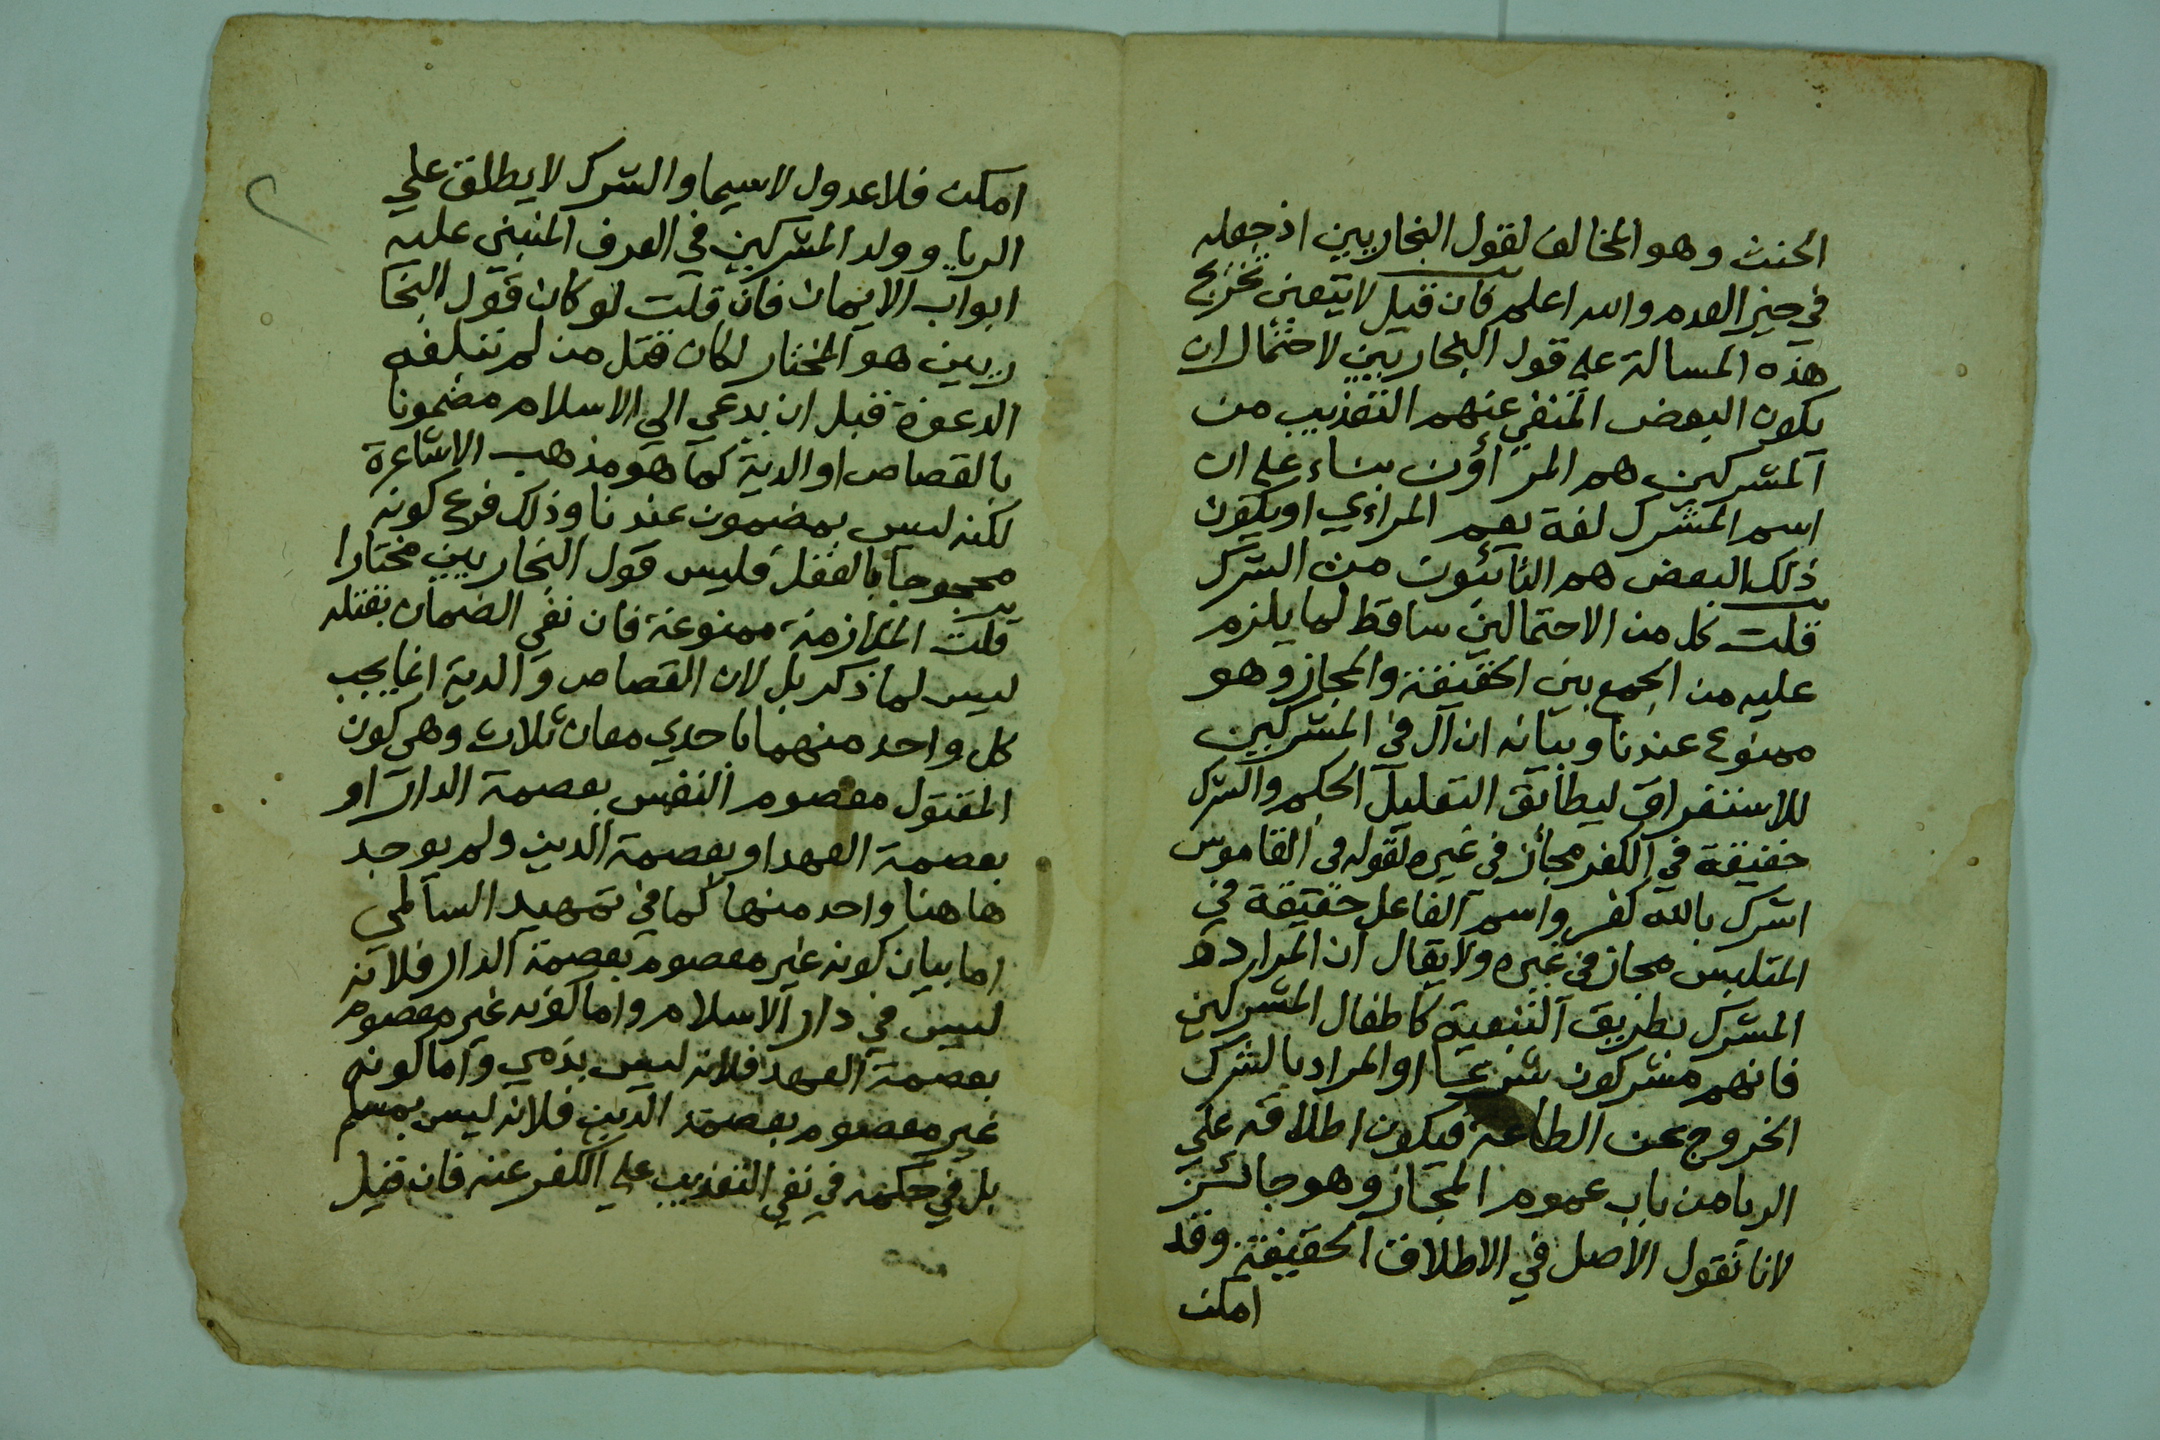 الحنث وهو المخالف لقول البخاريين اذ جعله
في حيز العدم والله اعلم فان قيل لا يتعين تخريج
هذه المسالة علي قول البخاريين لاحتمال ان
يكون البعض المنفي عنهم التعذيب من
المشركين هم المراؤن بناء علي ان
اسم المشرك لغة يعم المراءي او يكون
ذلك البعض هم التائبون من الشرك
قلت كل من الاحتمالين ساقط لما يلزم
عليه من الجمع بين الحقيقة والمجاز وهو
ممنوع عندنا وبيانه ان ال في المشركين
للاستغراق ليطابق التعليل الحكم والشرك
حقيقة في الكفر مجاز في غيره لقوله في القاموس
اشرك بالله كفر واسم الفاعل حقيقة في
المتلبس مجاز في غيره ولا يقال ان المراد
المشرك بطريق التبعية كاطفال المشركين
فانهم مشركون شرعا او المراد بالشرك
الخروج عن الطاعة فيكون اطلاقه علي
الريا من باب عموم المجاز وهو جائز
لانا نقول الاصل في الاطلاق الحقيقة وقد
امكن
امكن فلا عدول لا سيما والشرك لا يطلق علي
الريا وولد المشركين في العرف المنبني عليه
ابواب الايمان فان قلت لو كان قول البخا
ريين هو المختار لكان قتل من لم تبلغه
الدعوة قبل ان يدعي الي الاسلام مضمونا
بالقصاص او الدية كما هو مذهب الاشاعرة
لكنه ليس بمضمون عندنا وذلك فرع كونه
محجوجا بالعقل فليس قول البخاريين مختارا
قلت الملازمة ممنوعة فان نفي الضمان بقتله
ليس لما ذكر بل لان القصاص والدية انما يجب
كل واحد منهما باحدي معان ثلاث وهي كون
المقتول معصوم النفس بعصمة الدار او
بعصمة العهد او بعصمة الدين ولم يوجد
هاهنا واحد منها كما في تمهيد السالمي
اما بيان كونه غير معصوم بعصمة الدار فلانه
ليس في دار الاسلام واما كونه غير معصوم
بعصمة العهد فلانه ليس بذمي واما كونه
غير معصوم بعصمة الدين فلانه ليس بمسلم
بل في حكمه في نفي التعذيب علي الكفر عنه فان قيل